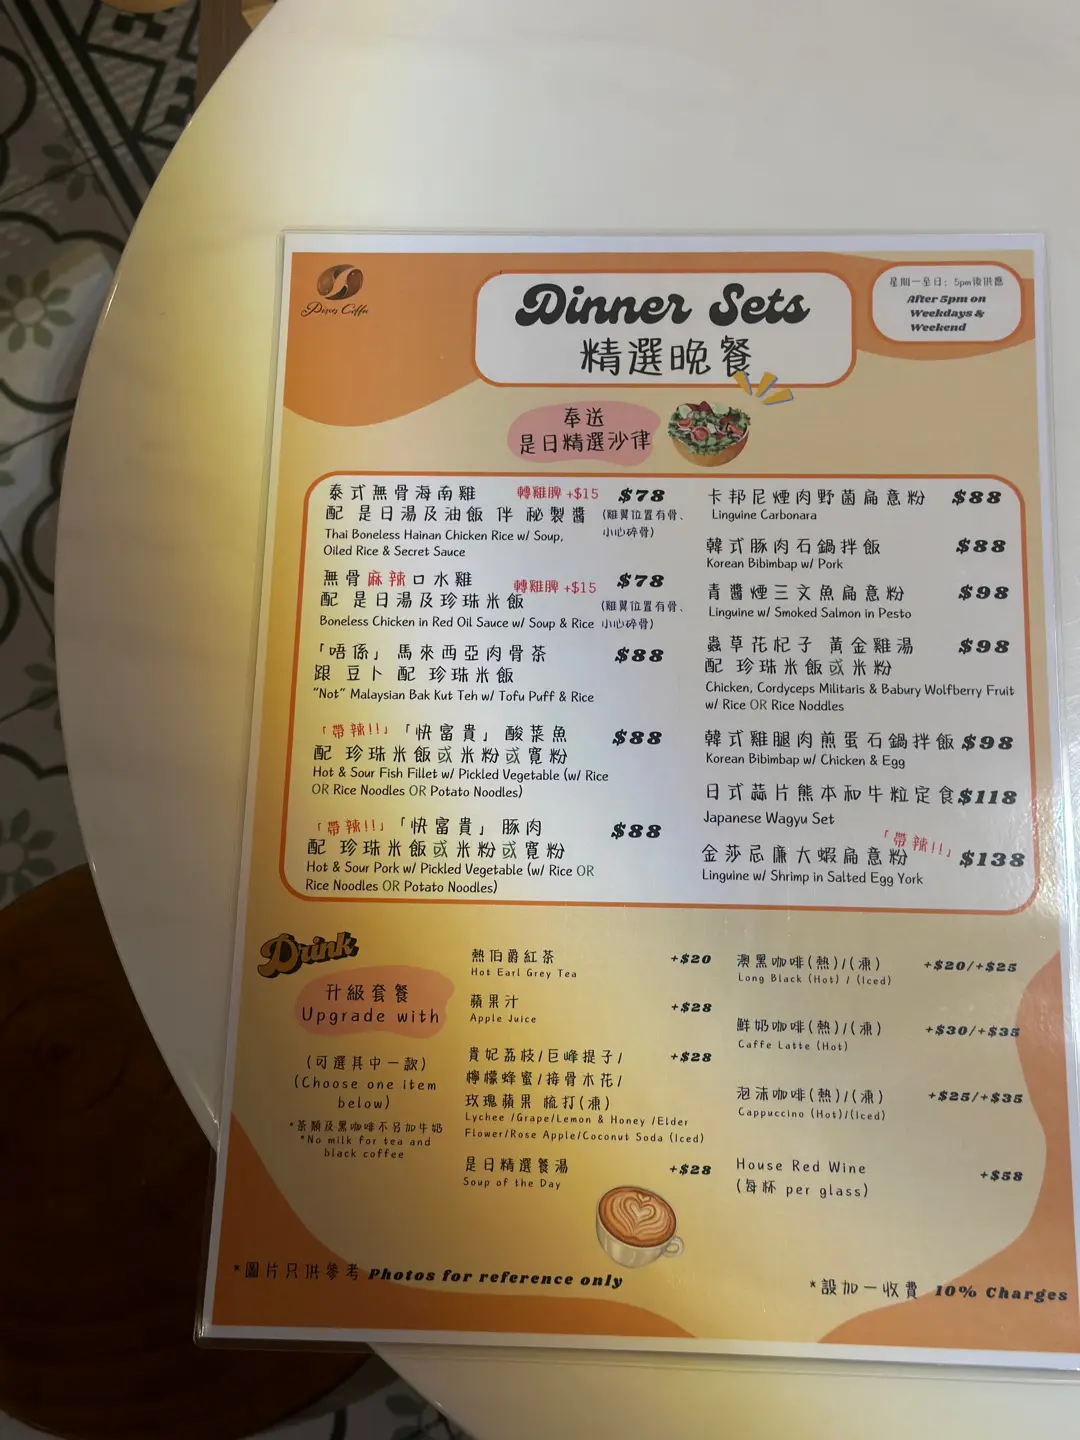 Dinner Sets
精選晚餐
星期一至日：5pm後供應
After 5pm on
Weekdays &
Weekend
奉送
是日精選沙律
泰式無骨海南雞 轉雞脾 +$15 $78
配 是日湯及油飯 伴 秘製醬 (雞翼位置有骨、
小心碎骨)
Thai Boneless Hainan Chicken Rice w/ Soup,
Oiled Rice & Secret Sauce
無骨麻辣口水雞 轉雞脾 +$15 $78
配 是日湯及珍珠米飯 (雞翼位置有骨、
Boneless Chicken in Red Oil Sauce w/ Soup & Rice 小心碎骨)
「唔係」馬來西亞肉骨茶 $88
跟 豆卜 配 珍珠米飯
"Not" Malaysian Bak Kut Teh w/ Tofu Puff & Rice
「帶辣!!」「快富貴」酸菜魚 $88
配 珍珠米飯或米粉或寬粉
Hot & Sour Fish Fillet w/ Pickled Vegetable (w/ Rice
OR Rice Noodles OR Potato Noodles)
「帶辣!!」「快富貴」豚肉 $88
配 珍珠米飯或米粉或寬粉
Hot & Sour Pork w/ Pickled Vegetable (w/ Rice OR
Rice Noodles OR Potato Noodles)
卡邦尼煙肉野菌扁意粉 $88
Linguine Carbonara
韓式豚肉石鍋拌飯 $88
Korean Bibimbap w/ Pork
青醬煙三文魚扁意粉 $98
Linguine w/ Smoked Salmon in Pesto
蟲草花杞子 黃金雞湯 $98
配 珍珠米飯或米粉
Chicken, Cordyceps Militaris & Babury Wolfberry Fruit
w/ Rice OR Rice Noddles
韓式雞腿肉煎蛋石鍋拌飯 $98
Korean Bibimbap w/ Chicken & Egg
日式蒜片熊本和牛粒定食 $118
Japanese Wagyu Set
「帶辣!!」
金莎忌廉大蝦扁意粉 $138
Linguine w/ Shrimp in Salted Egg York
Drink
升級套餐
Upgrade with
(可選其中一款)
(Choose one item
below)
*茶類及黑咖啡不另加牛奶
*No milk for tea and
black coffee
熱伯爵紅茶 +$20
Hot Earl Grey Tea
蘋果汁 +$28
Apple Juice
貴妃荔枝/巨峰提子/ +$28
檸檬蜂蜜/接骨木花/
玫瑰蘋果 梳打(凍)
Lychee /Grape/Lemon & Honey /Elder
Flower/Rose Apple/Coconut Soda (Iced)
是日精選餐湯 +$28
Soup of the Day
澳黑咖啡(熱)/(凍) +$20/+$25
Long Black (Hot) / (Iced)
鮮奶咖啡(熱)/(凍) +$30/+$35
Caffe Latte (Hot)
泡沫咖啡(熱)/(凍) +$25/+$35
Cappuccino (Hot)/(Iced)
House Red Wine +$58
(每杯 per glass)
*圖片只供參考 Photos for reference only
*設加一收費 10% Charges